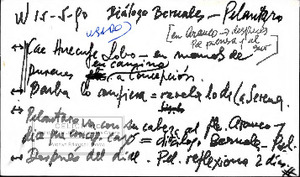 W 15-5-90 Diálogo Bernales - Pelantaro
usado
[en Arauco → después
Pel piensa y al
sur]
↔ Cae Huecufe Lobo - en manos de
en camino
purenes a Concepción.
↔ Barba lo confiesa = revela lo de La Serena.
↔ Pelantaro va con su cabeza al Fte. Arauco y
dice en concep. cayó = diálogo Bernales - Pel.
↔ Después del dial. Pel. reflexiona 2 días.